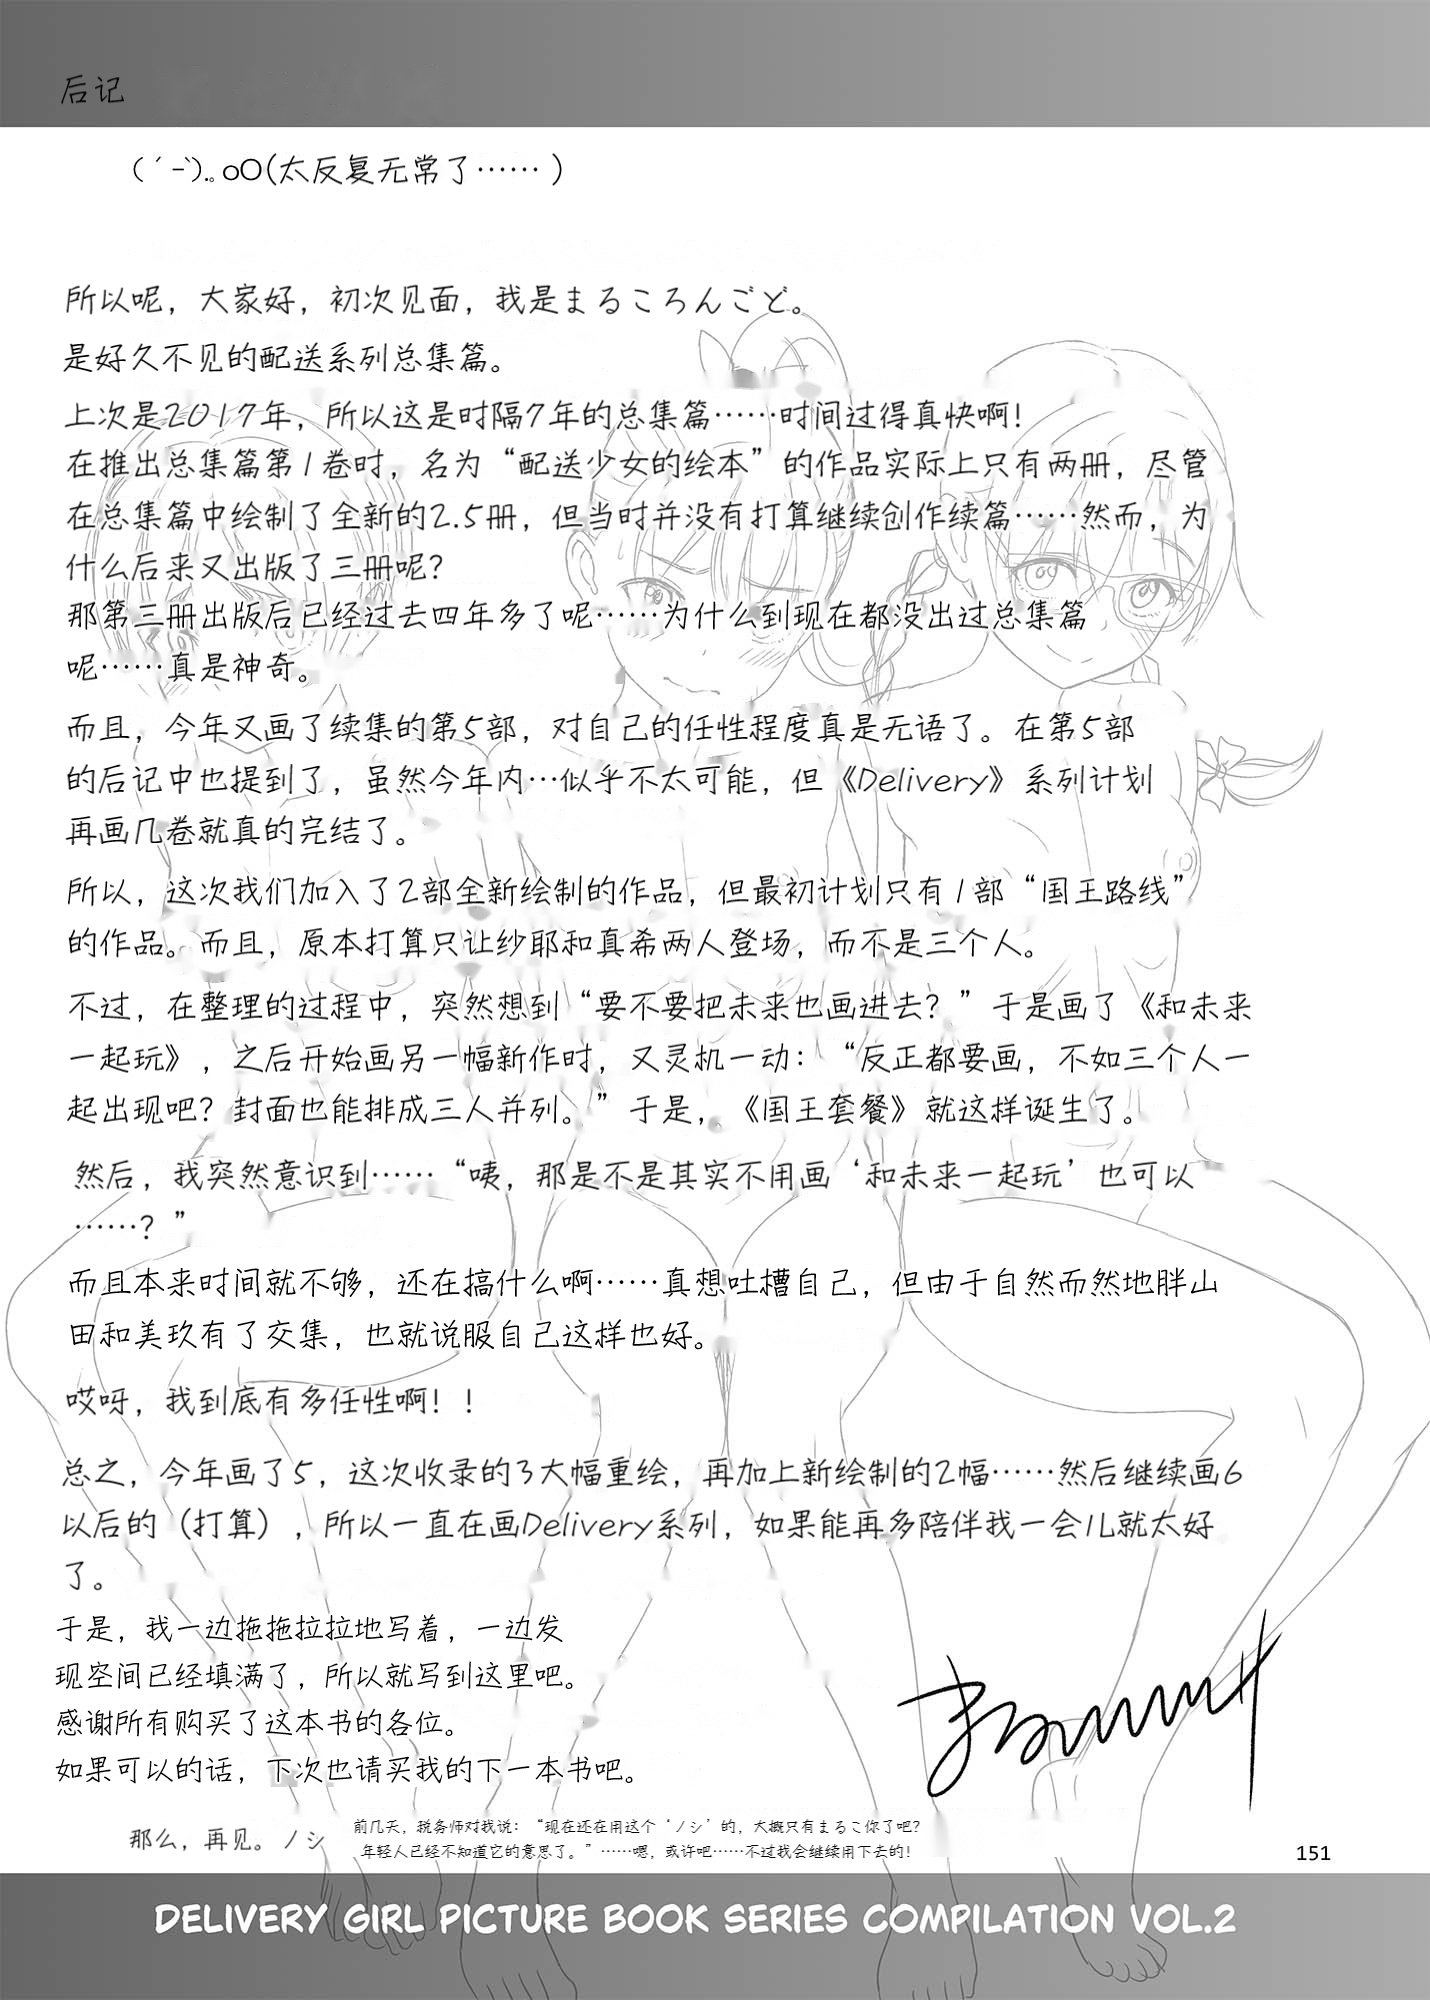 后记
( ´ -`).。oO(太反复无常了…… )
所以呢，大家好，初次见面，我是まるころんごど。
是好久不见的配送系列总集篇。
上次是2017年，所以这是时隔7年的总集篇……时间过得真快啊！
在推出总集篇第1卷时，名为“配送少女的绘本”的作品实际上只有两册，尽管
在总集篇中绘制了全新的2.5册，但当时并没有打算继续创作续篇……然而，为
什么后来又出版了三册呢？
那第三册出版后已经过去四年多了呢……为什么到现在都没出过总集篇
呢……真是神奇。
而且，今年又画了续集的第5部，对自己的任性程度真是无语了。在第5部
的后记中也提到了，虽然今年内…似乎不太可能，但《Delivery》系列计划
再画几卷就真的完结了。
所以，这次我们加入了2部全新绘制的作品，但最初计划只有1部“国王路线”
的作品。而且，原本打算只让纱耶和真希两人登场，而不是三个人。
不过，在整理的过程中，突然想到“要不要把未来也画进去？”于是画了《和未来
一起玩》，之后开始画另一幅新作时，又灵机一动：“反正都要画，不如三个人一
起出现吧？封面也能排成三人并列。”于是，《国王套餐》就这样诞生了。
然后，我突然意识到……“咦，那是不是其实不用画‘和未来一起玩’也可以
……？”
而且本来时间就不够，还在搞什么啊……真想吐槽自己，但由于自然而然地胖山
田和美玖有了交集，也就说服自己这样也好。
哎呀，我到底有多任性啊！！
总之，今年画了5，这次收录的3大幅重绘，再加上新绘制的2幅……然后继续画6
以后的（打算），所以一直在画Delivery系列，如果能再多陪伴我一会儿就太好
了。
于是，我一边拖拖拉拉地写着，一边发
现空间已经填满了，所以就写到这里吧。
感谢所有购买了这本书的各位。
如果可以的话，下次也请买我的下一本书吧。
那么，再见。ノシ
前几天，税务师对我说：“现在还在用这个‘ノシ’的，大概只有まるこ你了吧？
年轻人已经不知道它的意思了。”……嗯，或许吧……不过我会继续用下去的！
151
DELIVERY GIRL PICTURE BOOK SERIES COMPILATION VOL.2